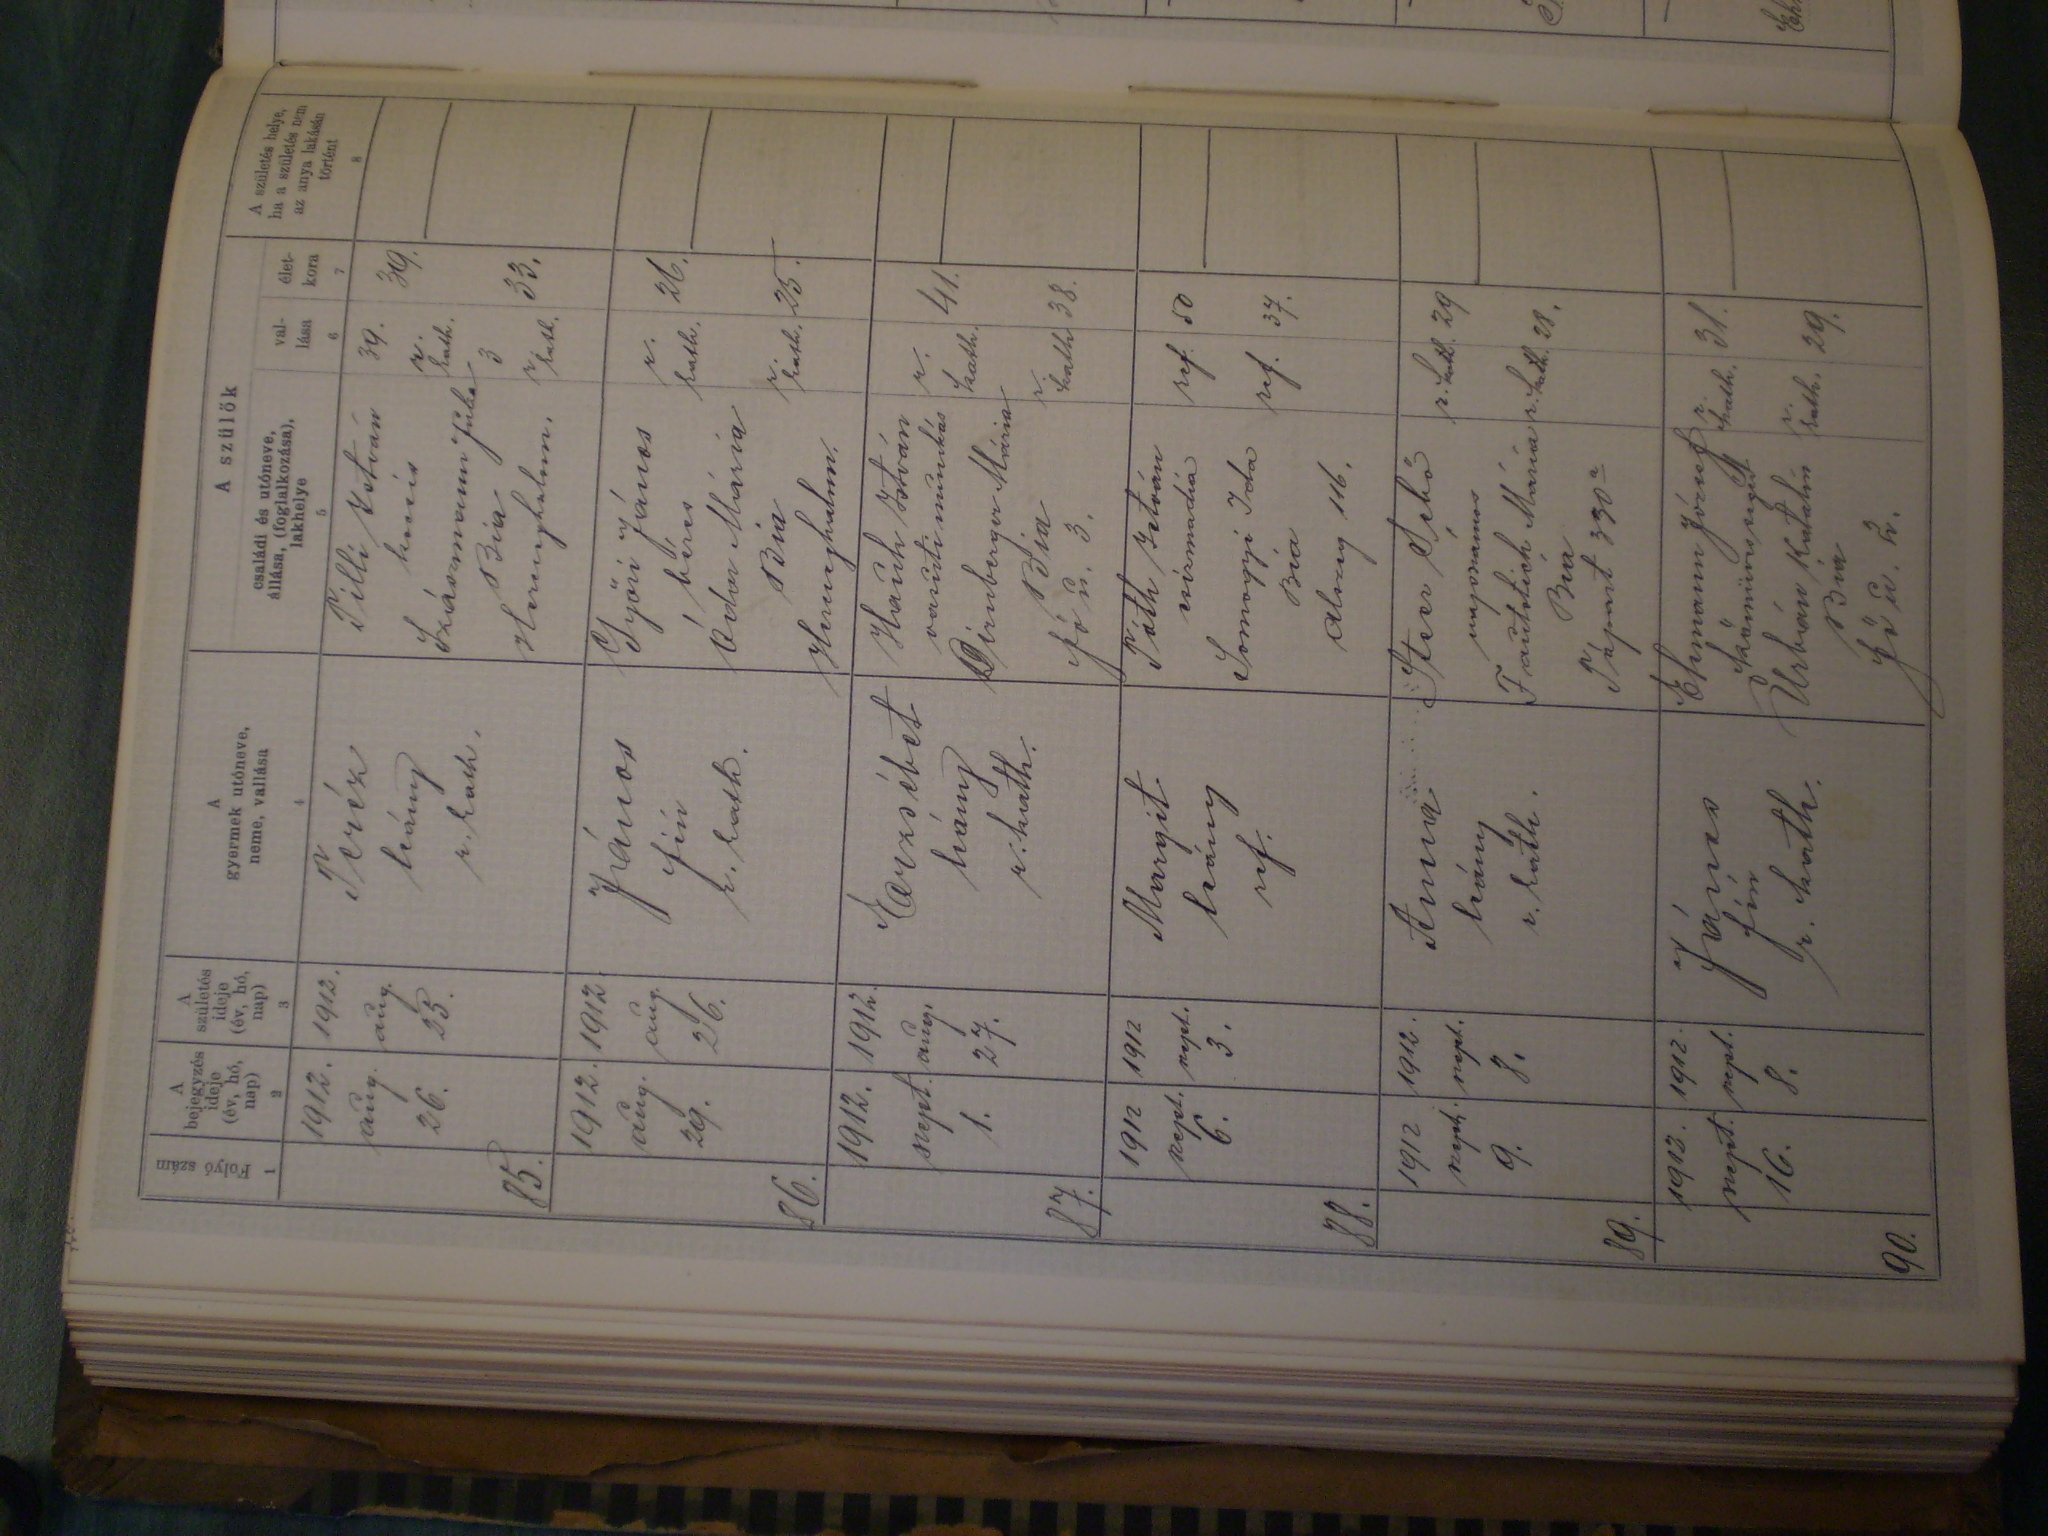 A szülők
Folyó szám
A bejegyzés ideje (év, hó, nap)
A születés ideje (év, hó, nap)
A gyermek utóneve, neme, vallása
családi és utóneve, állása, (foglalkozása), lakhelye
val- lása
élet- kora
A születés helye, ha a születés nem az anya lakásán történt
1 2 3 4 5 6 7 8
85.
1912. aug. 26.
1912. aug. 25.
Teréz
leány
r. kath.
Pilli István
Bia
39. r. kath.
39.
r. kath.
33.
86.
1912. aug. 29.
1912 aug. 26.
János
fiú
r. kath.
Győri János
béres
Mária
Bia
Herceghalm.
r. kath.
26.
r. kath.
25.
87.
1912. sept. 1.
1912. aug. 27.
Erzsébet
leány
r. kath.
Hauk István
vasuti munkás
Dirnberger Mária
Bia
Fő u. 3.
r. kath.
41.
r. kath
38.
88.
1912 sept. 6.
1912 sept. 3.
Margit
leány
ref.
Tóth István
csizmadia
Somogyi Ida
Bia
Alszeg 116.
ref.
50
ref.
37.
89.
1912 sept. 9.
1912. sept. 8.
Anna
leány
r. kath.
napszámos
Mária
Bia
Tápart 330
r. kath.
29
r. kath.
28.
90.
1912. sept. 16.
1912. sept. 8.
János
fiú
r. kath.
Ehmann József
kőmüvessegéd
Urbán Katalin
Bia
Fő u. 2.
r. kath.
31.
r. kath.
29.